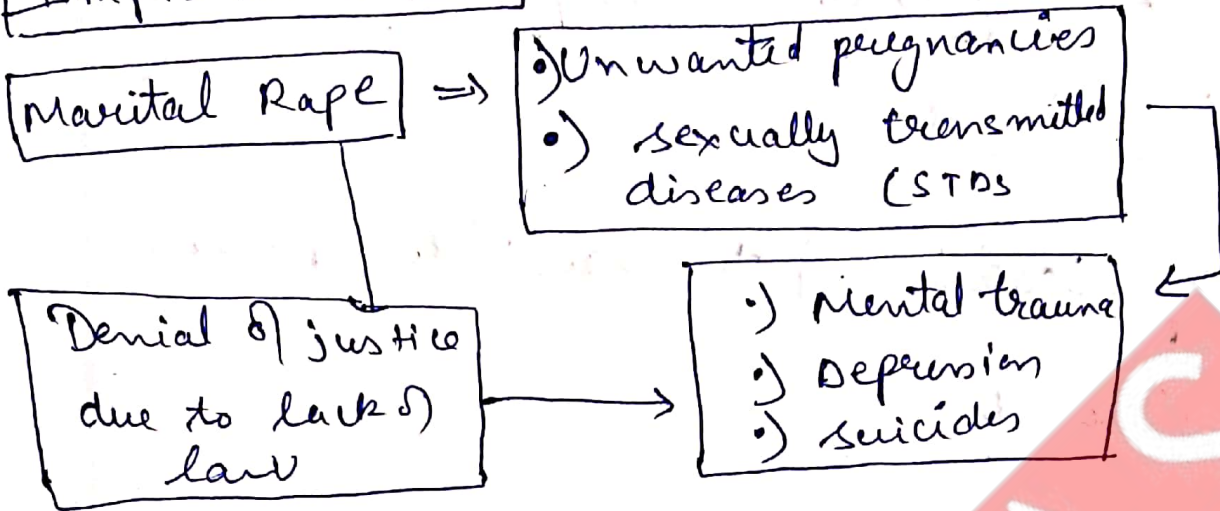 Marital Rape ⇒
•) Unwanted pregnancies
•) sexually transmitted
diseases (STDs
Denial of justice
due to lack of
law
•) Mental trauma
•) Depression
•) suicides